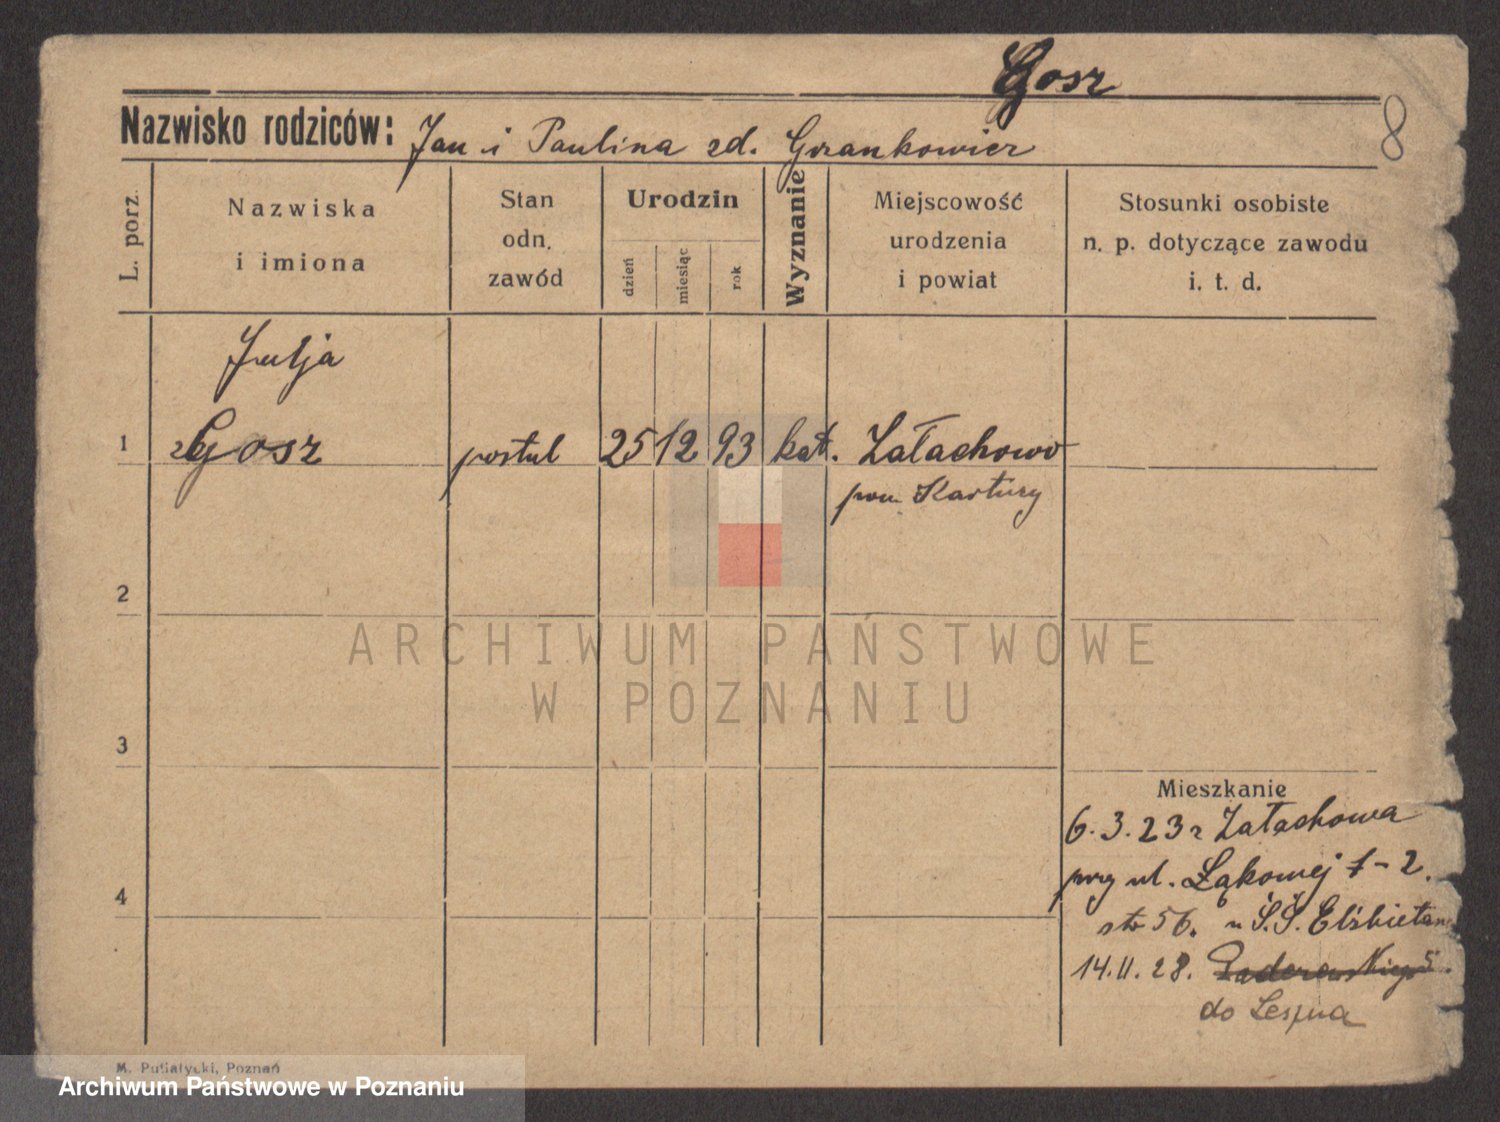 Gosz
Nazwisko rodziców: Jan i Paulina zd. Grankowicz
8
L. porz.
Nazwiska
i imiona
Stan
odn.
zawód
Urodzin
dzień
miesiąc
rok
Wyznanie
Miejscowość
urodzenia
i powiat
Stosunki osobiste
n. p. dotyczące zawodu
i. t. d.
Julja
1 Gosz postul 25 12 93 kat. Załachowo
pow Kartuzy
2
ARCHIWUM PAŃSTWOWE
W POZNANIU
3
Mieszkanie
6. 3. 23 z Załachowa
4
przy ul. Łąkowej 1-2.
str 56. u Ś.Ś. Elżbietan
14. 11. 28. Paderewskiego 5.
do Leszna
M. Putiatycki, Poznań
Archiwum Państwowe w Poznaniu